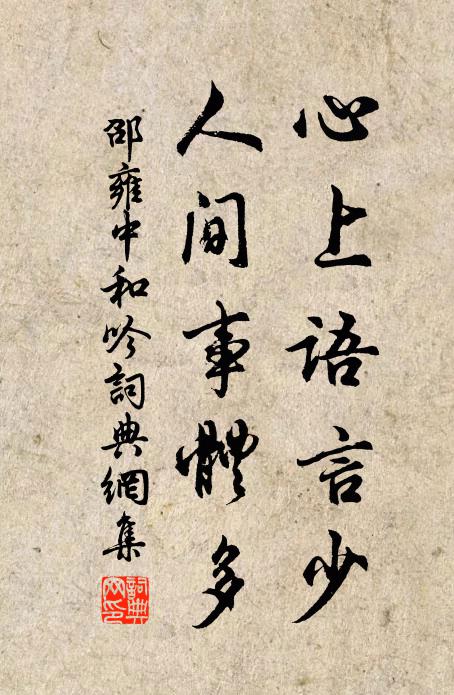 心上語言少
人間事體多
邵雍中和吟詞典網集
詞典网印